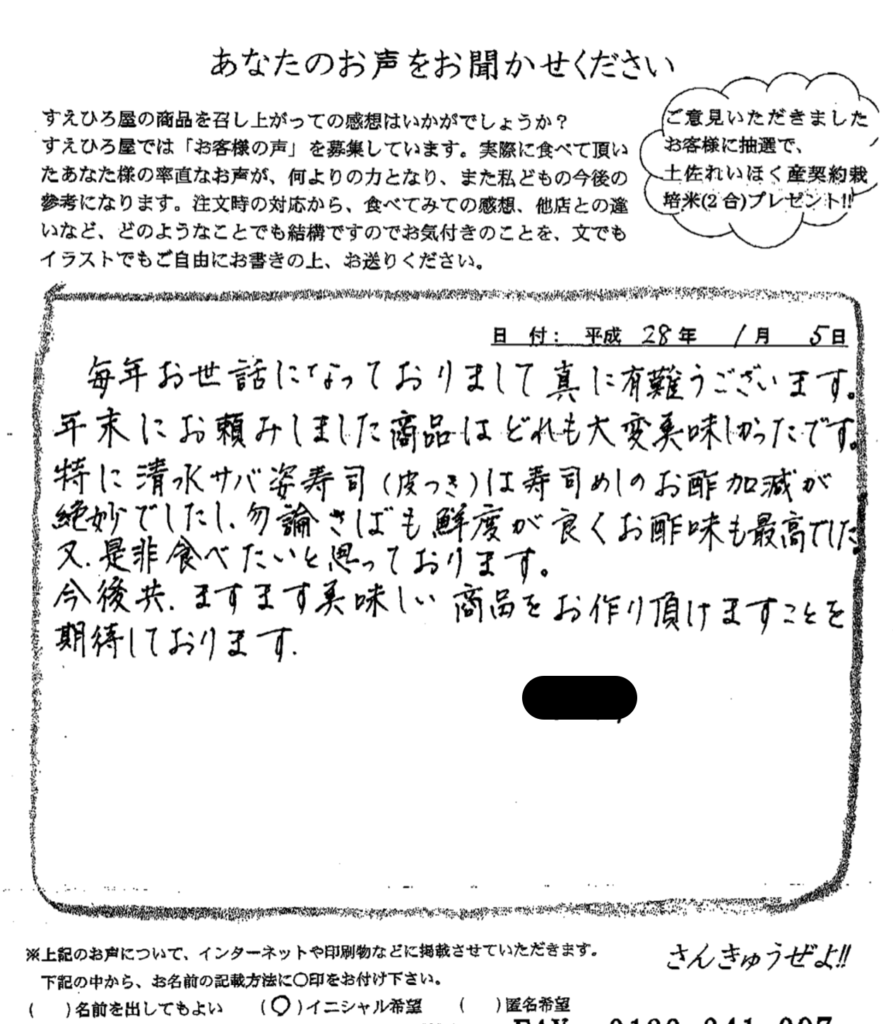 あなたのお声をお聞かせください
すえひろ屋の商品を召し上がっての感想はいかがでしょうか？
すえひろ屋では「お客様の声」を募集しています。実際に食べて頂い
たあなた様の率直なお声が、何よりの力となり、また私どもの今後の
参考になります。注文時の対応から、食べてみての感想、他店との違
いなど、どのようなことでも結構ですのでお気付きのことを、文でも
イラストでもご自由にお書きの上、お送りください。
ご意見いただきました
お客様に抽選で、
土佐れいほく産契約栽
培米(2合)プレゼント!!
日 付： 平成 28年 1月 5日
毎年お世話になっておりまして真に有難うございます。
年末にお頼みしました商品はどれも大変美味しかったです。
特に清水サバ姿寿司(皮つき)は寿司めしのお酢加減が
絶妙でしたし、勿論さばも鮮度が良くお酢味も最高でした。
又、是非食べたいと思っております。
今後共、ますます美味しい商品をお作り頂けますことを
期待しております.
※上記のお声について、インターネットや印刷物などに掲載させていただきます。
下記の中から、お名前の記載方法に○印をお付け下さい。
さんきゅうぜよ!!
( )名前を出してもよい (○)イニシャル希望 ( )匿名希望